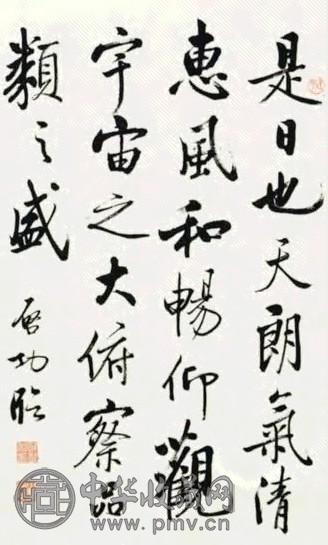 是日也天朗氣清
惠風和暢仰觀
宇宙之大俯察品
類之盛
启功临
中华收藏网
www.pimv.cn